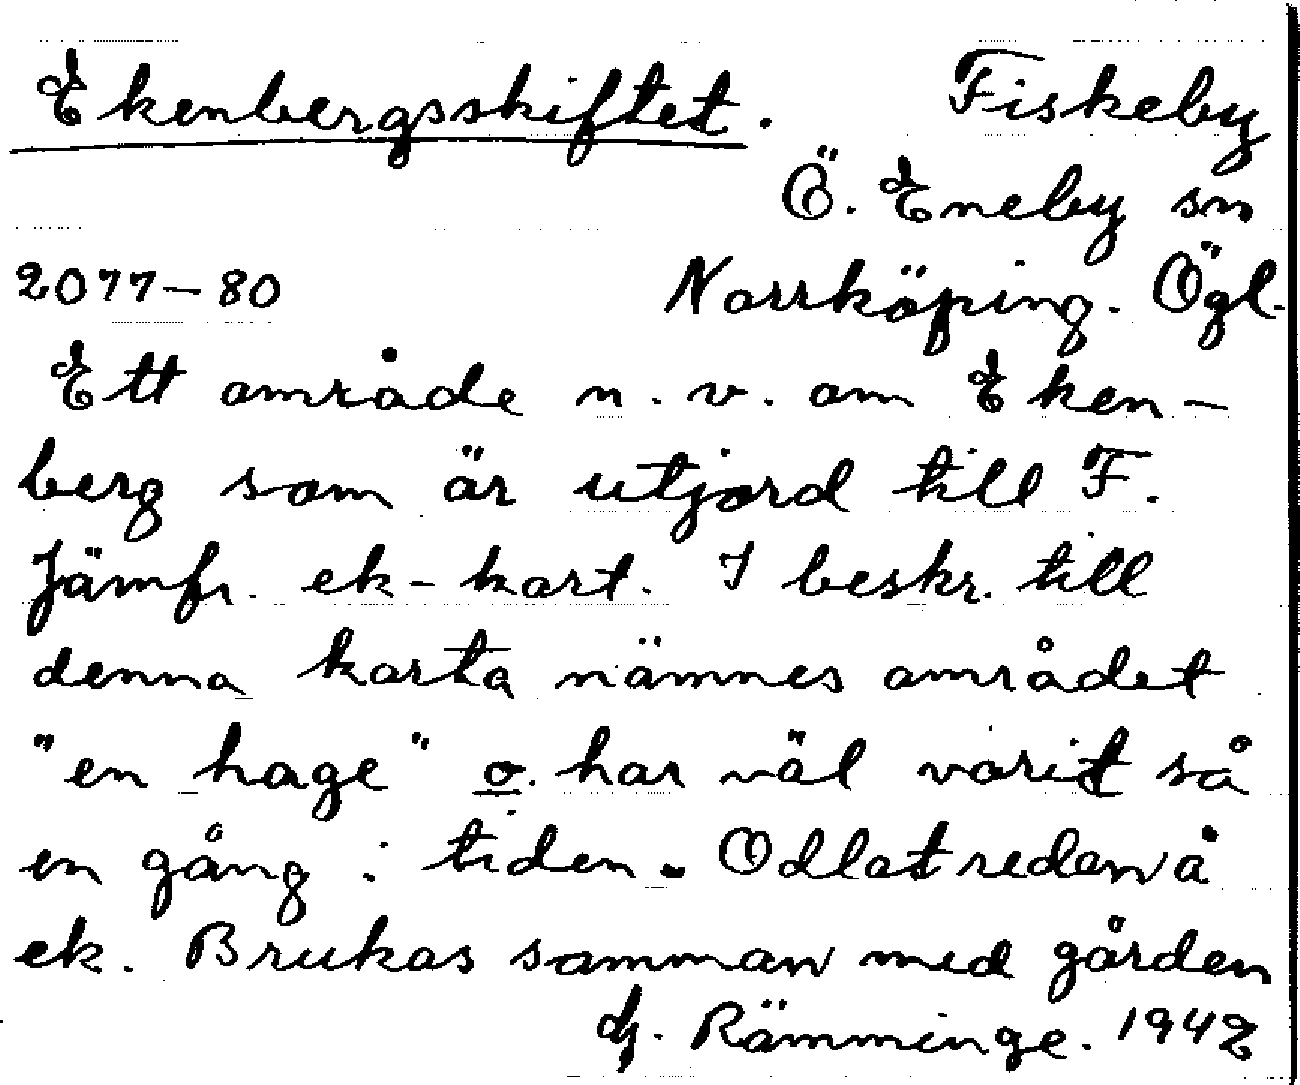 Ekenbergsskiftet. Fiskeby
Ö. Eneby sn
2077-80 Norrköping. Ögl.
Ett område n. v. om Eken-
berg som är utjord till F.
Jämfr. ek-kart. I beskr. till
denna karta nämnes området
"en hage" o. har väl varit så
en gång i tiden. Odlat redan å
ek. Brukas samman med gården
Hj. Rämminge. 1942